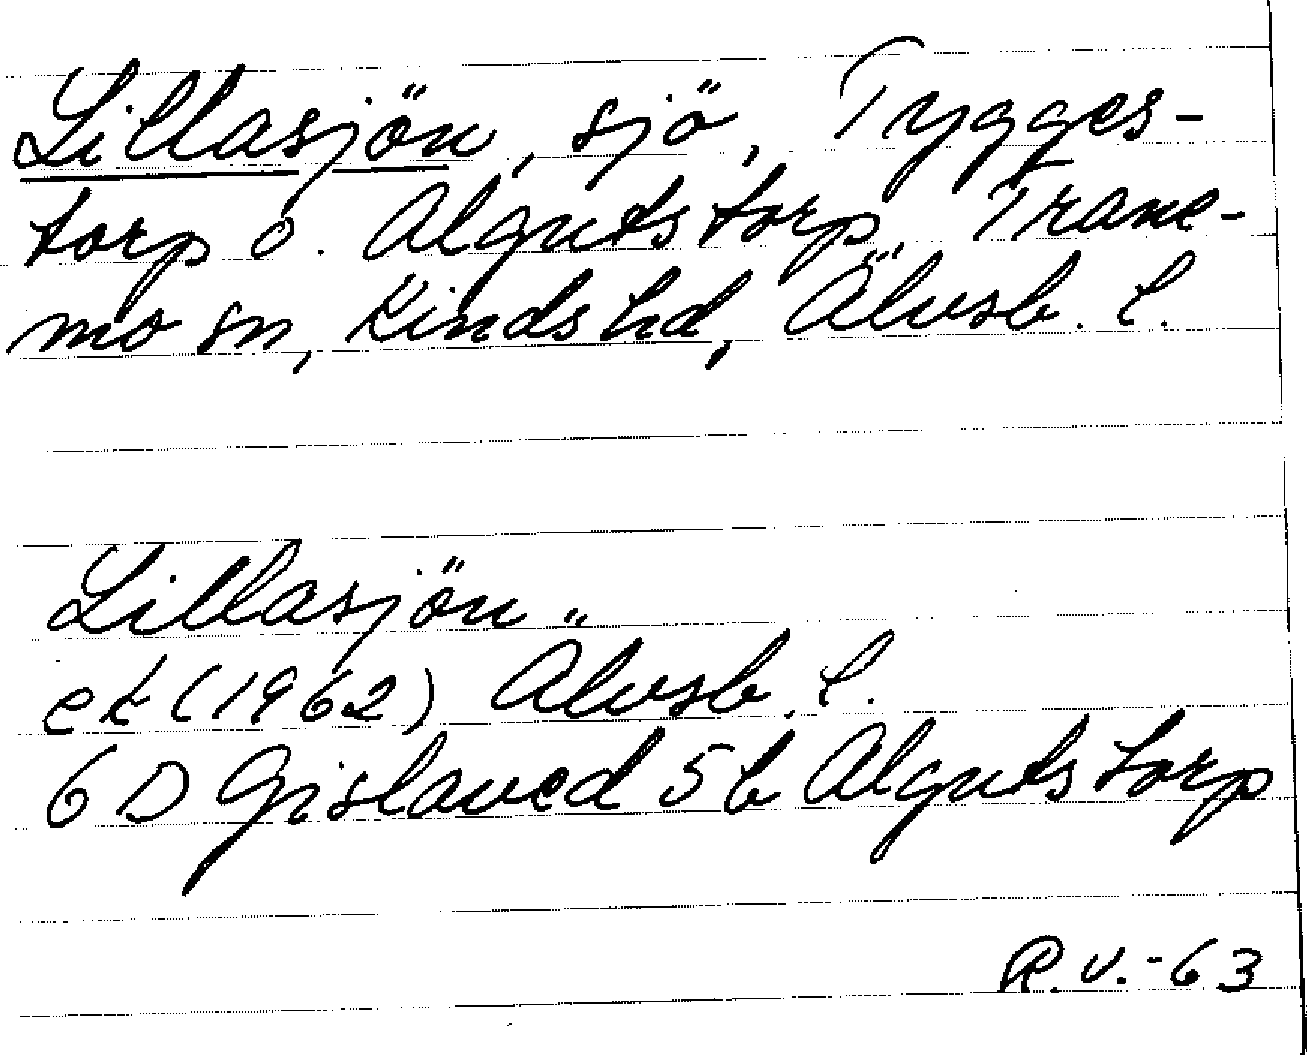 Lillasjön, sjö, Tygges-
torp o. Algutstorp, Trane-
mo sn, Kinds hd, Älvsb. l.
Lillasjön
ek (1962) Älvsb. l.
6 D Gislaved 5 b Algutstorp
R.V.-63